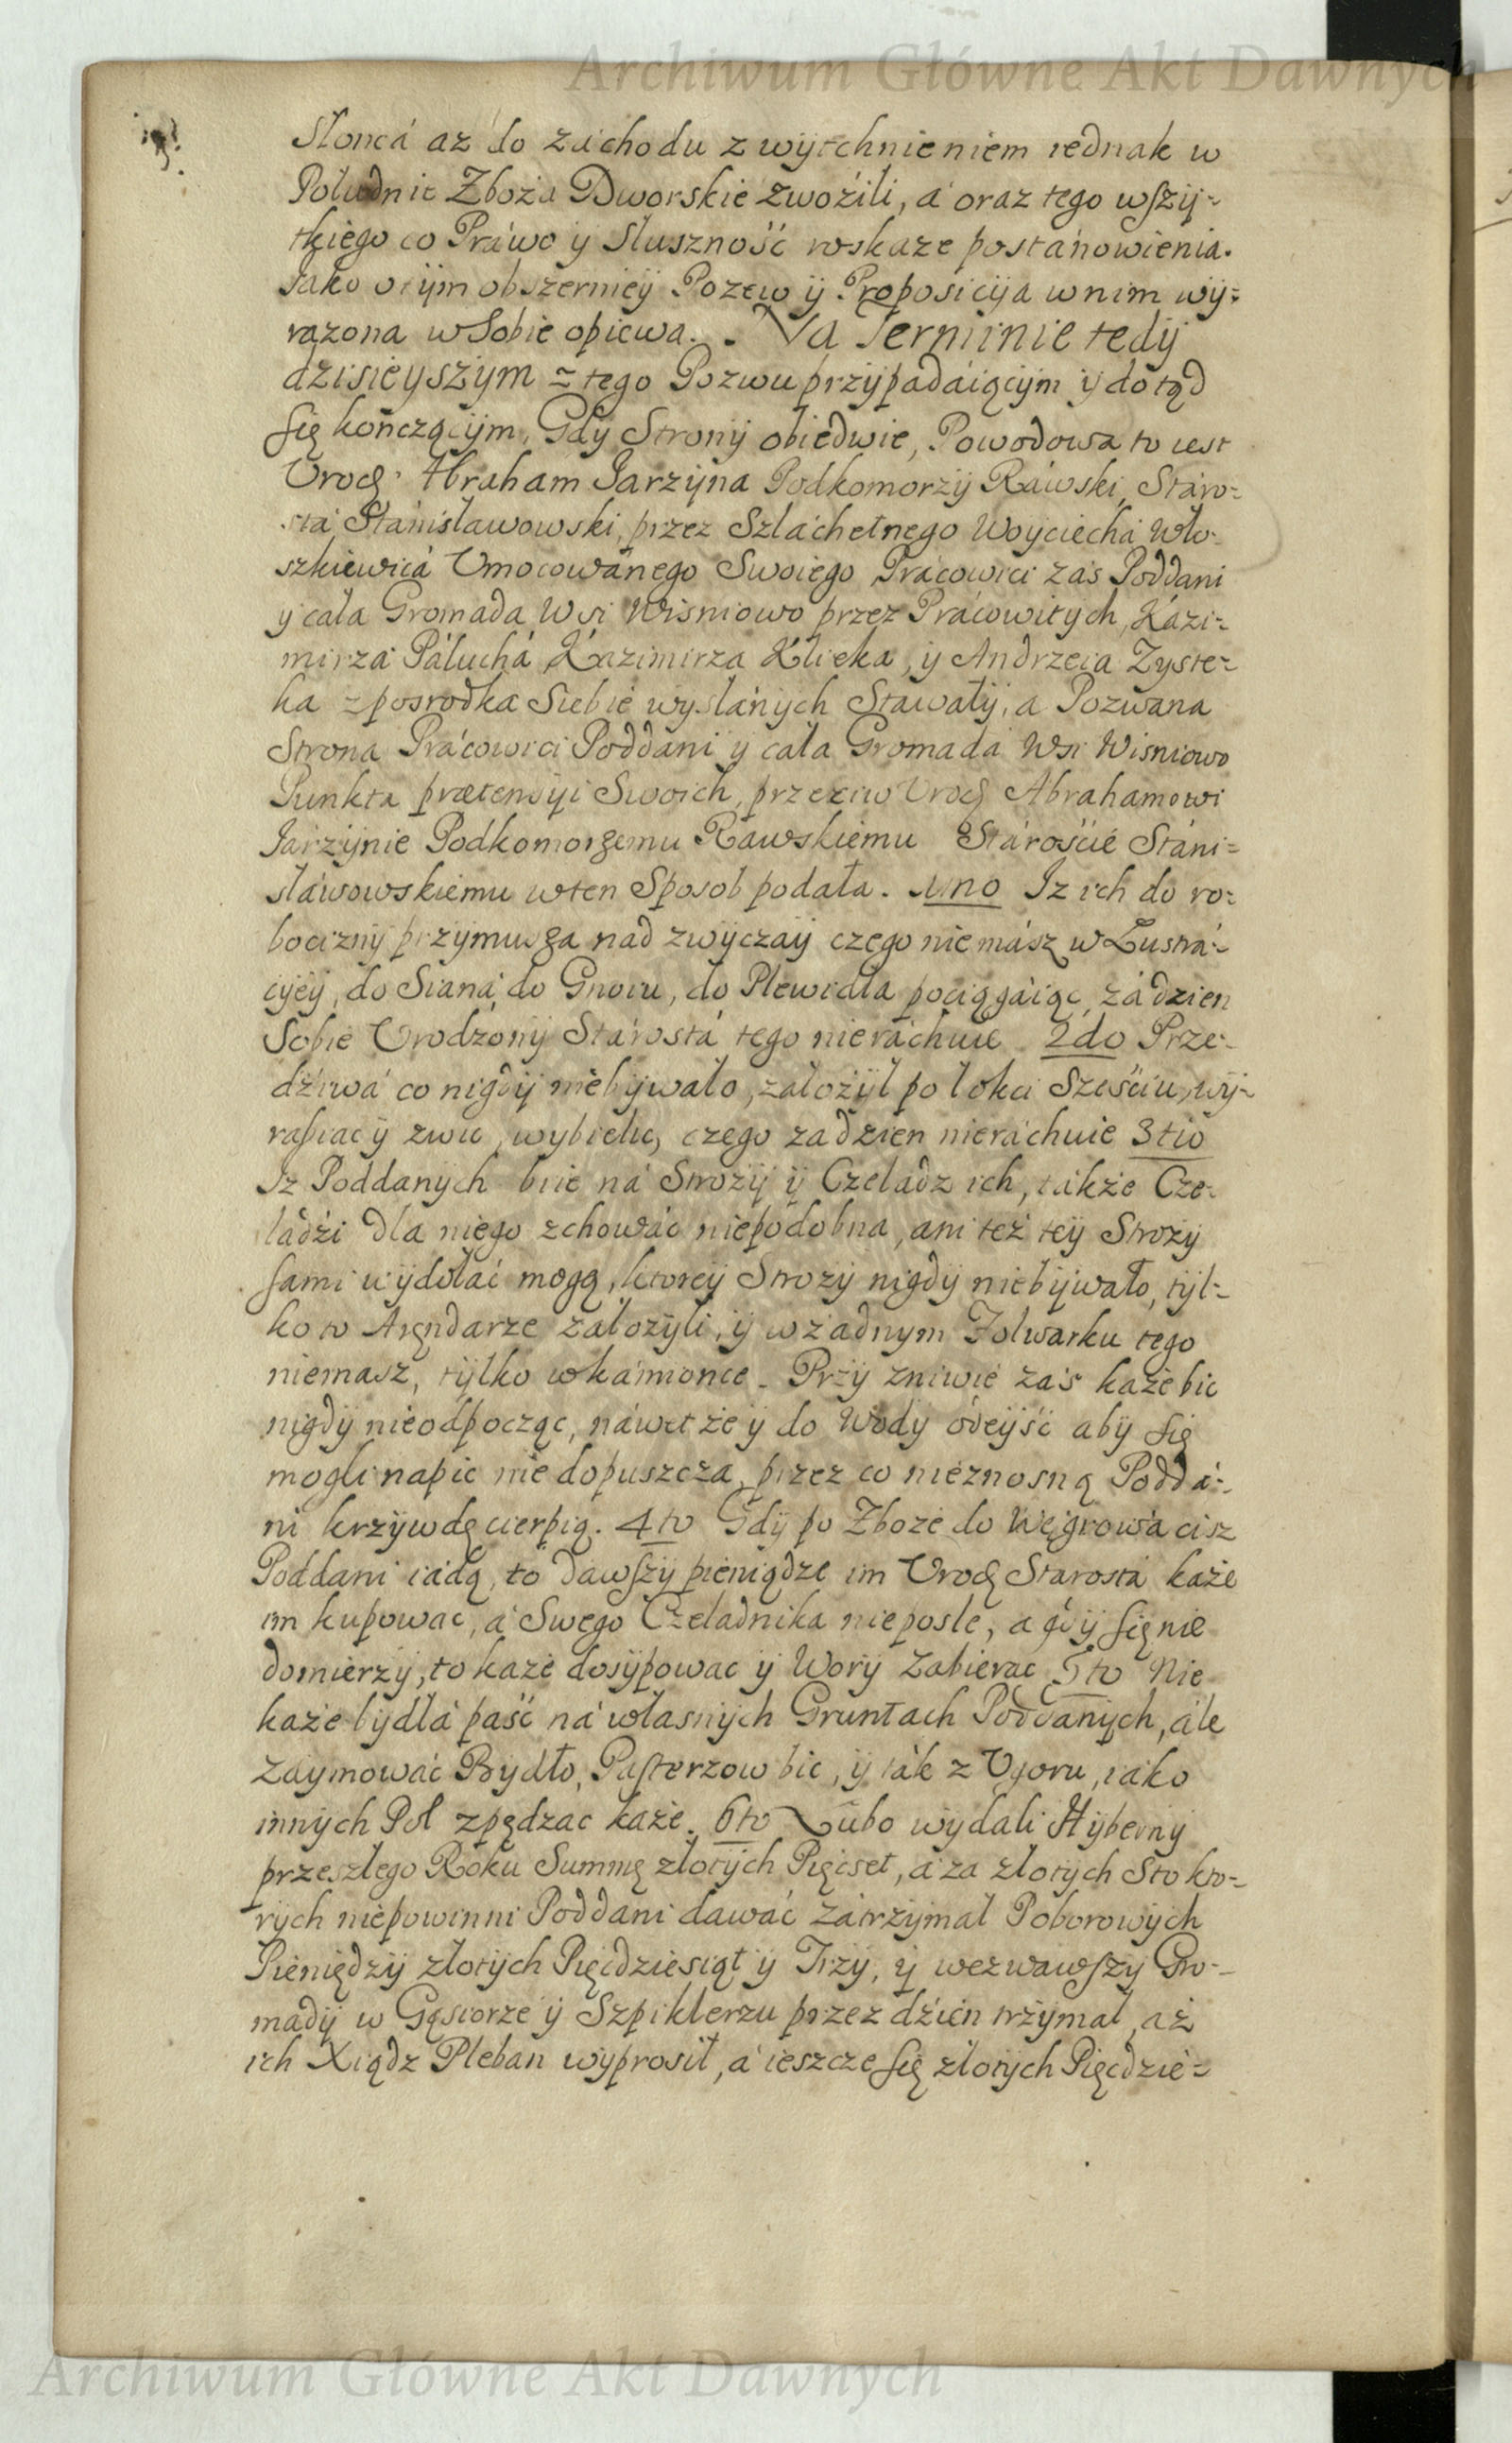 Archiwum Główne Akt Dawnych
Słoncá aż do záchodu z wytchnieniem iednak w
Południe Zboża Dworskie zwoźili, á oraz tego wszy-
tkiego co Práwo y Słuszność roskaze postánowienia.
Iako o tym obszerniey Pozew y Proposicyia w nim wy-
rażona w Sobie opiewa. Na Terminie tedy
dzisieyszym z tego Pozwu przypadáiącym y dotąd
się kończącym, Gdy Strony obiedwie, Powodowa to iest
Urodz. Abraham Iarzyna Podkomorzy Ráwski, Stáro-
stá Stánisławowski, przez Szláchetnego Woyciechá Wło-
szkiewicá Umocowánego Swoiego Prácowici zás Poddani
y cała Gromada Wsi Wisniowo przez Prácowitych, Kázi-
mirzá Páluchá Kazimirza Klieka, y Andrzeia Zyste-
ka z posrodka Siebie wysłánych Stawały, a Pozwana
Strona Prácowici Poddani y cała Gromadá Wsi Wisniowo
Punkta prætensyi Swoich, przeciw Urodz Abrahamowi
Iarzynie Podkomorzemu Rawskiemu Stárośćie Stáni-
sławowskiemu w ten Sposob podała. 1mo Iz ich do ro-
bocizny przymusza nad zwyczay czego niemász w Lustrá-
cyey, do Siana do Gnoiu, do Plewidła pociągáiąc, zá dzien
Sobie Urodzony Stárostá tego nieráchuie 2do Prze-
dźiwá co nigdy niebywało, załozył po łokci Sześciu, wy-
rapiac y zwic, wybielic, czego za dzien nieráchuie 3tio
Iz Poddanych biie ná Strozy y Czeladz ich, także Cze-
ládźi dla niego zchowác niepodobna, ani też tey Strozy
sami wydołać mogą, ktorey Strozy nigdy niebywało, tyl-
ko to Aręndarze założyli, y w żadnym Folwarku tego
niemasz, tylko w kámionce. Przy zniwie zás każe bic
nigdy nieodpocząc, náwet że y do Wody odeyść aby się
mogli napic niedopuszcza, przez co nieznosną Poddá-
ni krzywdę cierpią. 4to Gdy po Zboże do Węgrowa ciż
Poddani iádą, to dawszy pieniądze im Urodz Starostá każe
im kupowac, á Swego Czeladnika nieposle, a gdy się nie
domierzy, to każe dosypowac y Wory Zabierac 5to Nie
każe bydłá paść ná własnych Gruntach Poddanych, ále
Zaymowáć Bydło, Pasterzow bic, y ták z Ugoru, iako
innych Pol zpędzac każe. 6to Lubo wydali Hyberny
przeszłego Roku Summę złotych Pięcset, á za złotych Sto kto-
rych niepowinni Poddani dawáć Zátrzymał Poborowych
Pieniędzy złotych Pięcdziesiąt y Trzy, y wezwawszy Gro-
mady w Gąsiorze y Szpiklerzu przez dzień trzymał, aż
ich Xiądz Pleban wyprosił, á ieszcze się złotych Pięcdzie-
Archiwum Główne Akt Dawnych